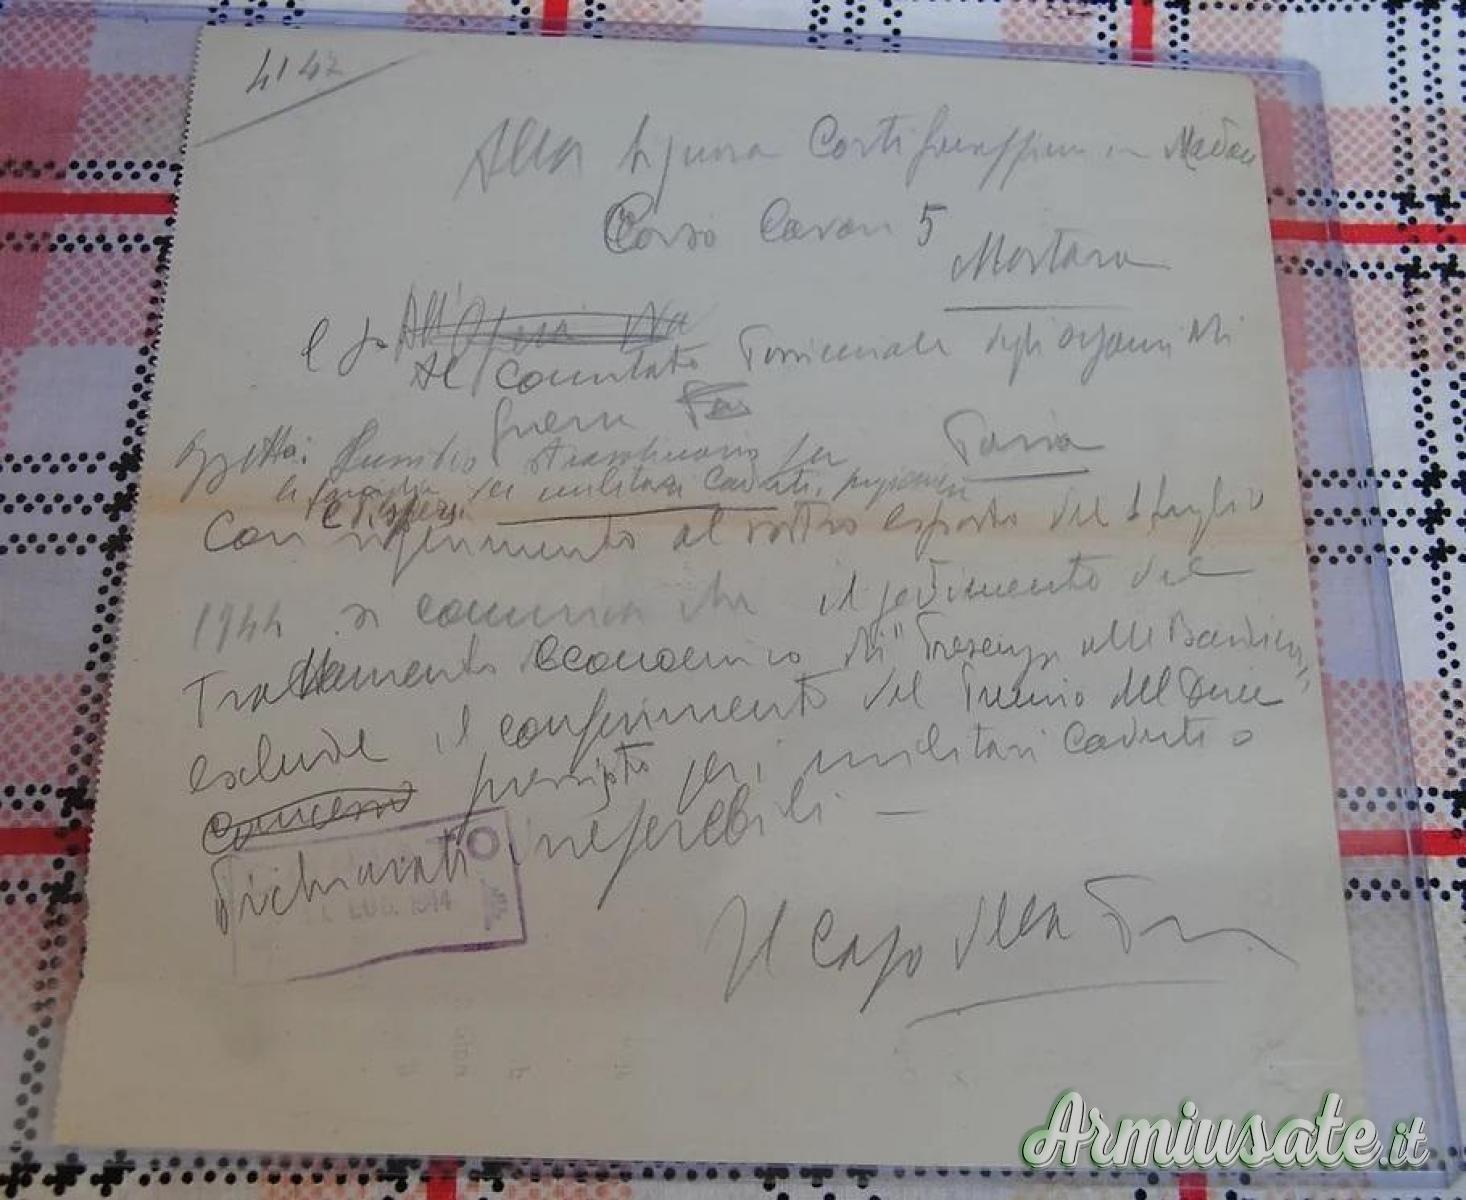 4142
Alla Signora Corti Giuseppina in
Corso Cavour 5
Mortara
e p.
All'Opera
Al Comitato Provinciale degli orfani di
guerra
Pavia
Oggetto: Sussidio straordinario per
le famiglie dei militari Caduti, prigionieri
e dispersi
Con riferimento al vostro esposto del 1 luglio
1944 si comunica che il godimento del
Trattamento economico di "Presenza alle Bandiere"
esclude il conferimento del Premio del Duce
concesso previsto per i militari Caduti o
Dichiarati irreperibili —
LUG. 1944
Il Capo della
Armiusate.it